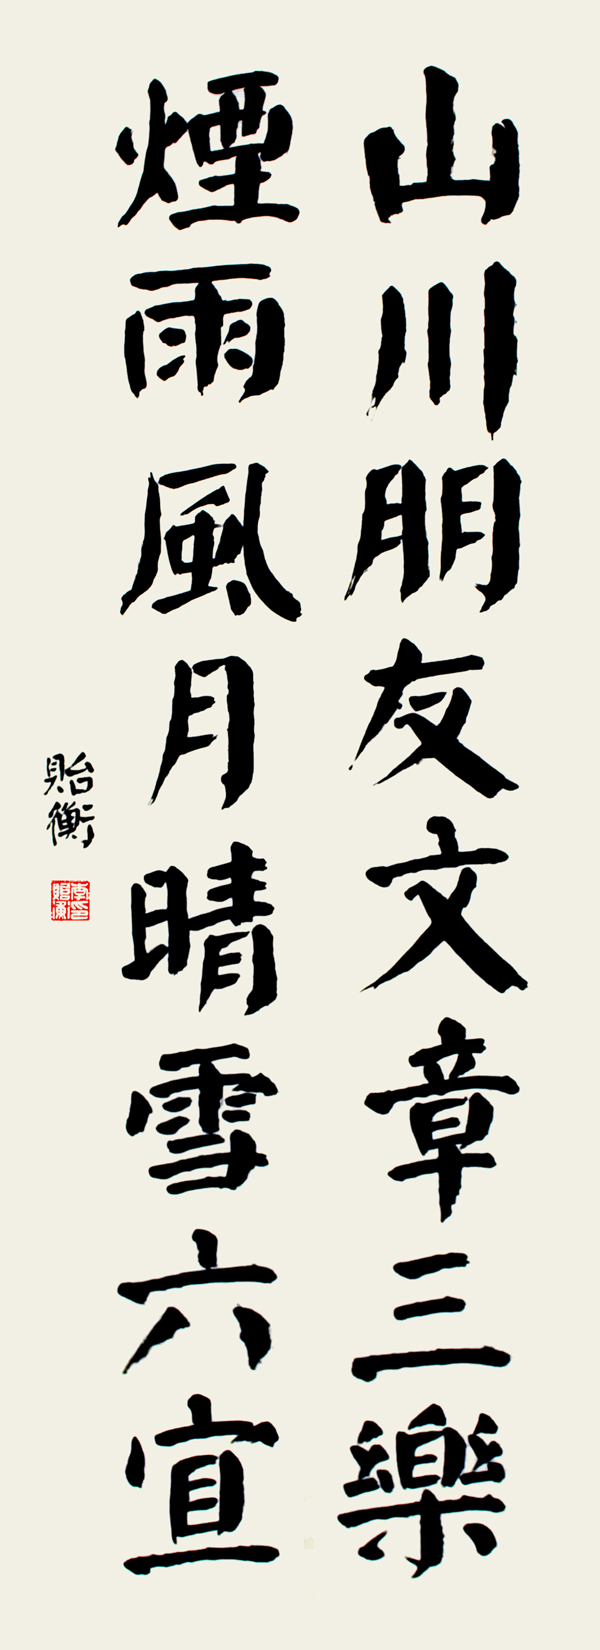 山川朋友文章三樂
煙雨風月晴雪六宜
貽衡
李印貽衡